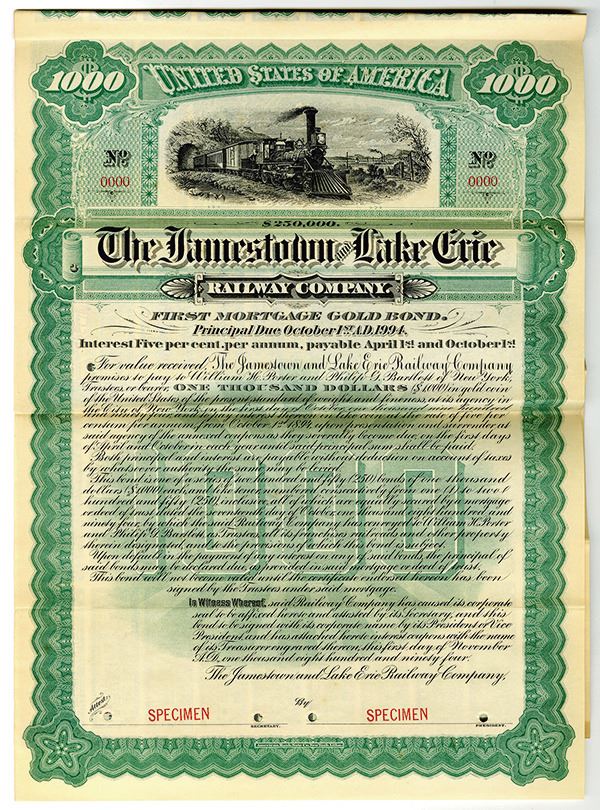 1000 UNITED STATES OF AMERICA 1000
No No
0000 0000
$250,000.
The Jamestown and Lake Erie
RAILWAY COMPANY.
FIRST MORTGAGE GOLD BOND.
Principal Due October 1st A.D. 1994.
Interest Five per cent. per annum, payable April 1st and October 1st
For value received, The Jamestown and Lake Erie Railway Company
promises to pay to William H. Porter and Philip G. Bartlett of New York,
Trustees, or bearer, ONE THOUSAND DOLLARS ($1,000) in gold coin
of the United States of the present standard weight and fineness, at its agency in
the City of New York, on the first day of October, one thousand nine hundred
and interest thereon at the rate of five per
centum per annum, from October 1st 1894, upon presentation and surrender at
said agency of the annexed coupons as they severally become due, on the first days
of April and October in each year until said principal sum shall be paid.
Both principal and interest are payable without deduction on account of taxes
by whatsoever authority the same may be levied.
This bond is one of a series of two hundred and fifty (250) bonds of one thousand
dollars ($1,000) each, of like tenor, numbered consecutively from one (1) to two
hundred and fifty (250), inclusive, all secured by a mortgage
or deed of trust dated the first day of October, one thousand eight hundred and
ninety four, by which the said Railway Company has conveyed to William H. Porter
and Philip G. Bartlett as Trustees, all its franchises, railroad and other property
therein described, and to the provisions of which this bond is subject.
Upon default in the payment of any interest on any of said bonds, the principal of
said bonds may be declared due, as provided in such mortgage or deed of trust.
This bond will not become valid until the certificate endorsed hereon has been
signed by the Trustees under said mortgage.
In Witness Whereof, said Railway Company has caused its corporate
seal to be affixed hereto and attested by its Secretary, and this
bond to be signed with its corporate name by its President or Vice
President and has attached hereto interest coupons with the name
of its Treasurer engraved thereon, this first day of November
A.D. one thousand eight hundred and ninety four.
The Jamestown and Lake Erie Railway Company,
Attest By
SPECIMEN SPECIMEN
SECRETARY. PRESIDENT.